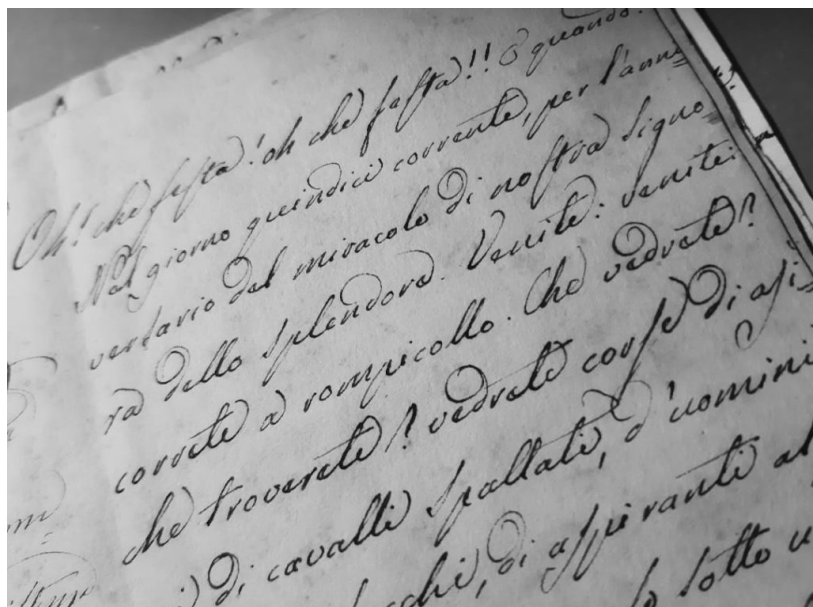 Oh! che festa! oh che festa!! E quando?
Nel giorno quindici corrente, per l'anni=
versario del miracolo di nostra Signo=
ra dello splendore. Venite: venite:
correte a rompicollo. Che vedrete?
che troverete? vedrete corse di asi=
di cavalli spallati, d'uomini
di aspiranti al
sotto